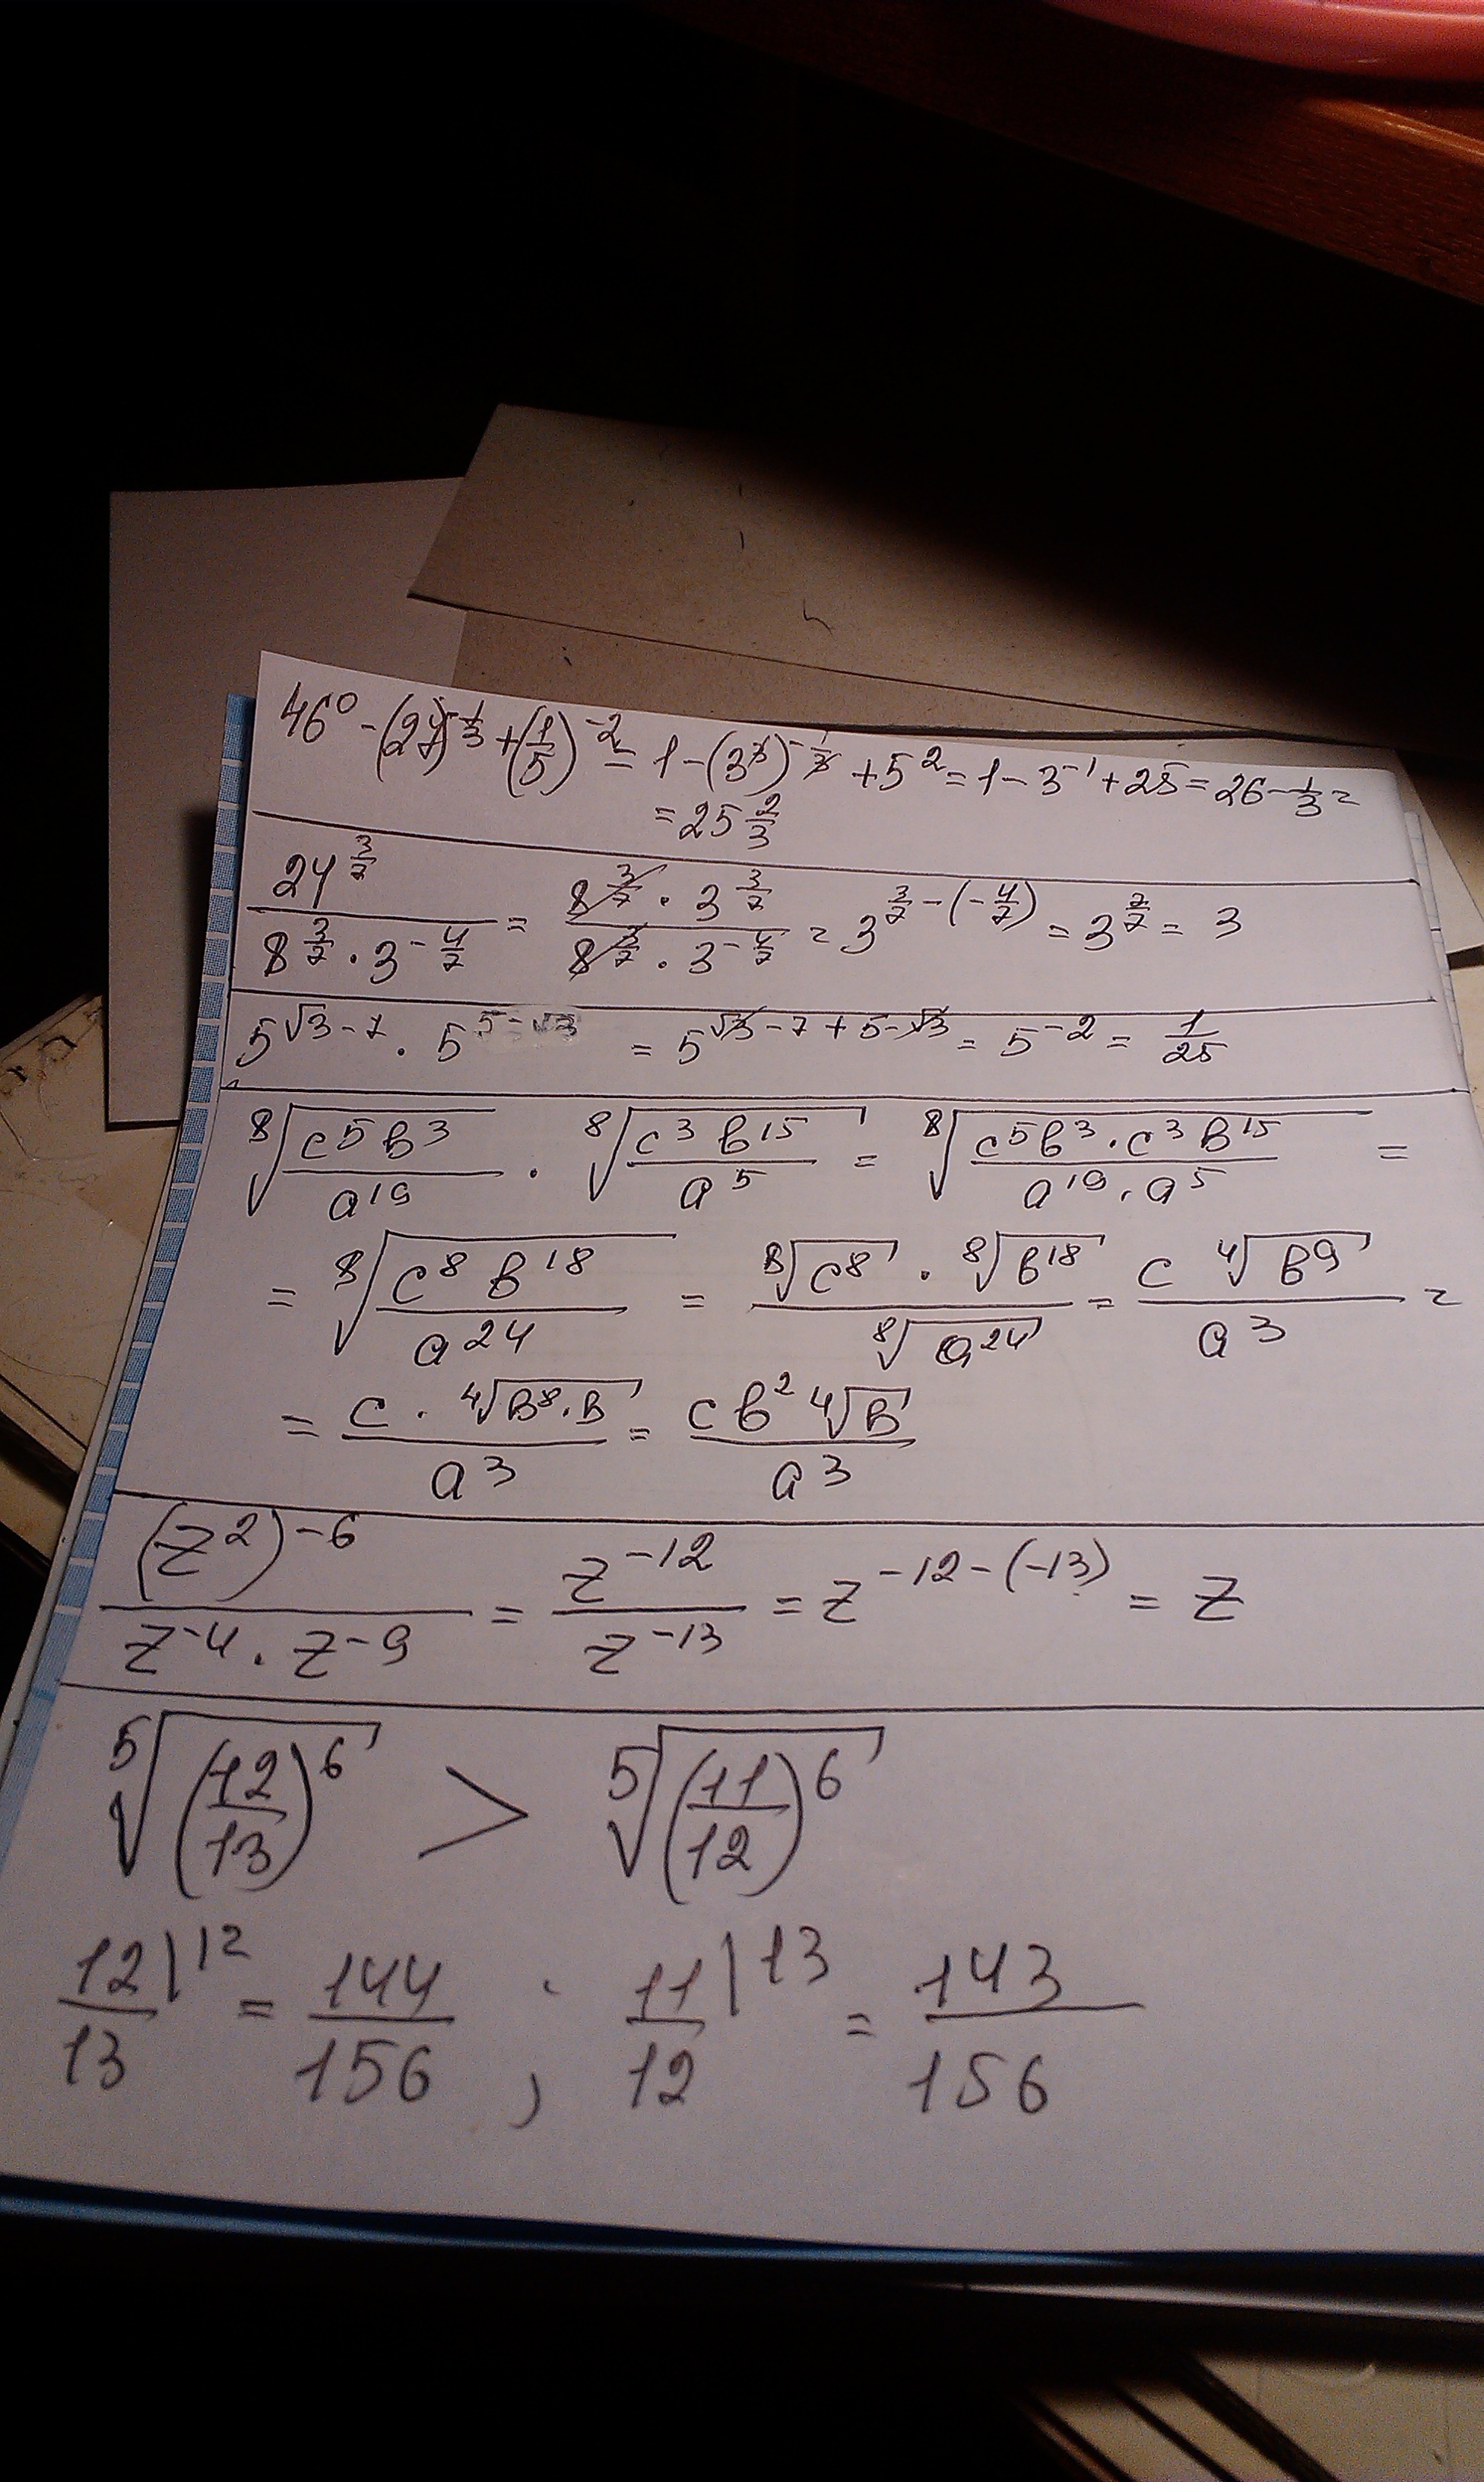 46⁰ - (27)^(-1/3) + (1/5)^(-2) = 1 - (3³)^(-1/3) + 5² = 1 - 3⁻¹ + 25 = 26 - 1/3 =
= 25 2/3
24^(3/7) / (8^(3/7) · 3^(-4/7)) = (8^(3/7) · 3^(3/7)) / (8^(3/7) · 3^(-4/7)) = 3^(3/7 - (-4/7)) = 3^(7/7) = 3
5^(√3 - 7) · 5^(5 - √3) = 5^(√3 - 7 + 5 - √3) = 5⁻² = 1/25
⁸√(c⁵b³/a¹⁹) · ⁸√(c³b¹⁵/a⁵) = ⁸√(c⁵b³ · c³b¹⁵ / a¹⁹ · a⁵) =
= ⁸√(c⁸b¹⁸/a²⁴) = ⁸√c⁸ · ⁸√b¹⁸ / ⁸√a²⁴ = c ⁴√b⁹ / a³ =
= c · ⁴√(b⁸ · b) / a³ = cb² ⁴√b / a³
(z²)⁻⁶ / (z⁻⁴ · z⁻⁹) = z⁻¹² / z⁻¹³ = z^(-12 - (-13)) = z
⁵√((12/13)⁶) > ⁵√((11/12)⁶)
12/13 \¹² = 144/156 ; 11/12 \¹³ = 143/156